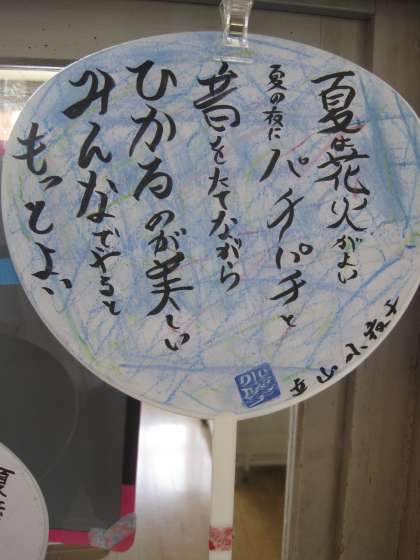 夏は花火がよい
夏の夜に パチパチと
音をたてながら
ひかるのが美しい
みんなでやると
もっとよい
立山小夜子
夏は